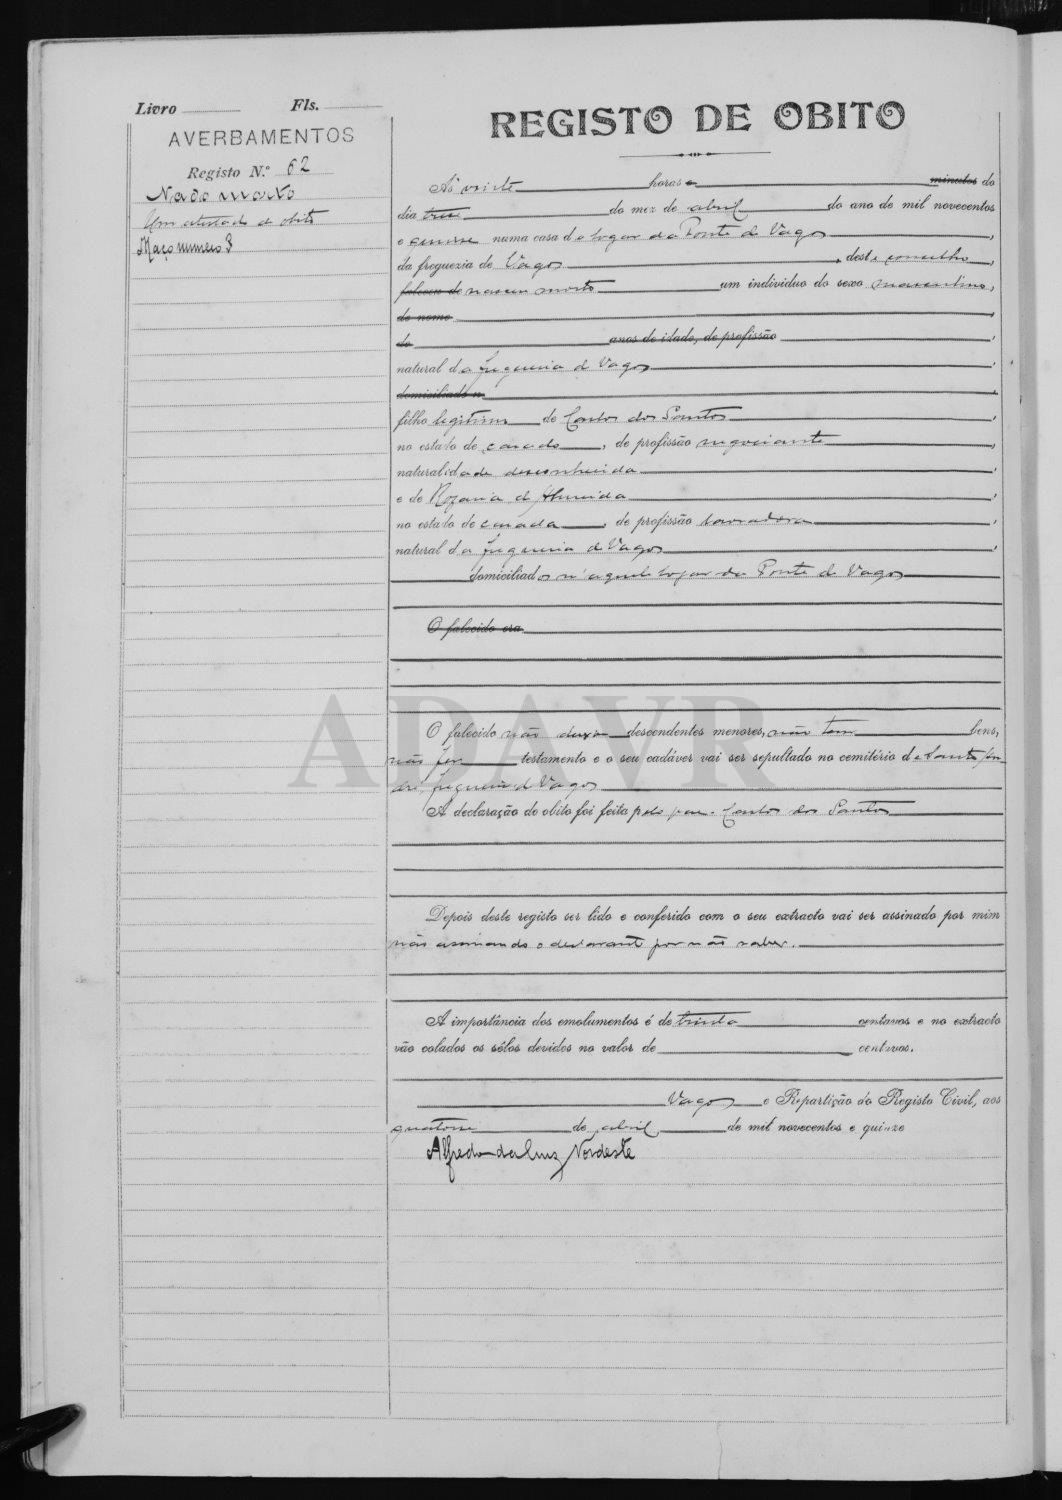 Livro Fls.
AVERBAMENTOS
Registo N.º 62
Nado morto
Um atestado de obito
Maço numero 3
REGISTO DE OBITO
Ás vinte horas e minutos do
dia treze do mez de abril do ano de mil novecentos
e quinze numa casa do logar da Ponte de Vagos,
da freguezia de Vagos, deste concelho,
faleceu de nasceu morto um individuo do sexo masculino,
de nome
de anos de idade, de profissão
natural da freguesia de Vagos
domiciliado n
filho legitimo de Carlos dos Santos
no estado de casado, de profissão negociante
naturalidade desconhecida
e de Rozaria de Almeida
no estado de casada, de profissão lavradora
natural da freguesia de Vagos
domiciliados n'aquele logar da Ponte de Vagos
O falecido era
ADAVR
O falecido não deixa descendentes menores, não tem bens,
não fez testamento e o seu cadáver vai ser sepultado no cemitério de Santo An
dré, freguesia de Vagos
A declaração do obito foi feita pelo pae Carlos dos Santos
Depois deste registo ser lido e conferido com o seu extracto vai ser assinado por mim
não assinando o declarante por não saber.
A importância dos emolumentos é de trinta centavos e no extracto
vão colados os sêlos devidos no valor de centavos.
Vagos e Repartição do Registo Civil, aos
quatorze de abril de mil novecentos e quinze
Alfredo da Luz Nordeste